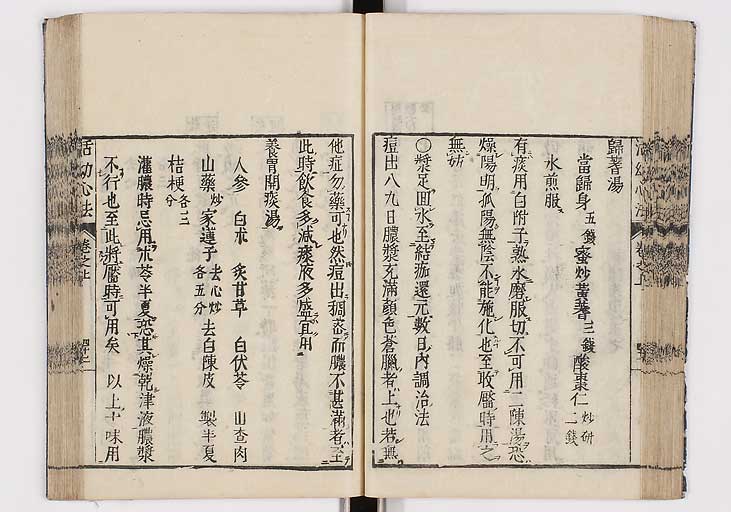 歸蓍湯
當歸身五錢 蜜炒黃蓍三錢 酸棗仁炒研二錢
水煎服
有痰用白附子熟水磨服切不可用二陳湯恐
燥陽明孤陽無陰不能施化也至收靨時用之
無妨
○漿足回水至結痂還元數日內調治法
痘出八九日膿漿充滿顏色蒼臘者上也若無
他症勿藥可也然痘出稠密而膿不甚滿者至
此時飲食多減痰液多盛宜用
養胃開痰湯
人參 白朮 炙甘草 白伏苓 山查肉
山藥炒 家蓮子去心炒各五分 去白陳皮 製半夏
桔梗各三分
灌膿時忌用朮苓半夏恐其燥乾津液膿漿
不行也至此將靨時可用矣 以上十味用
活幼心法 卷之上